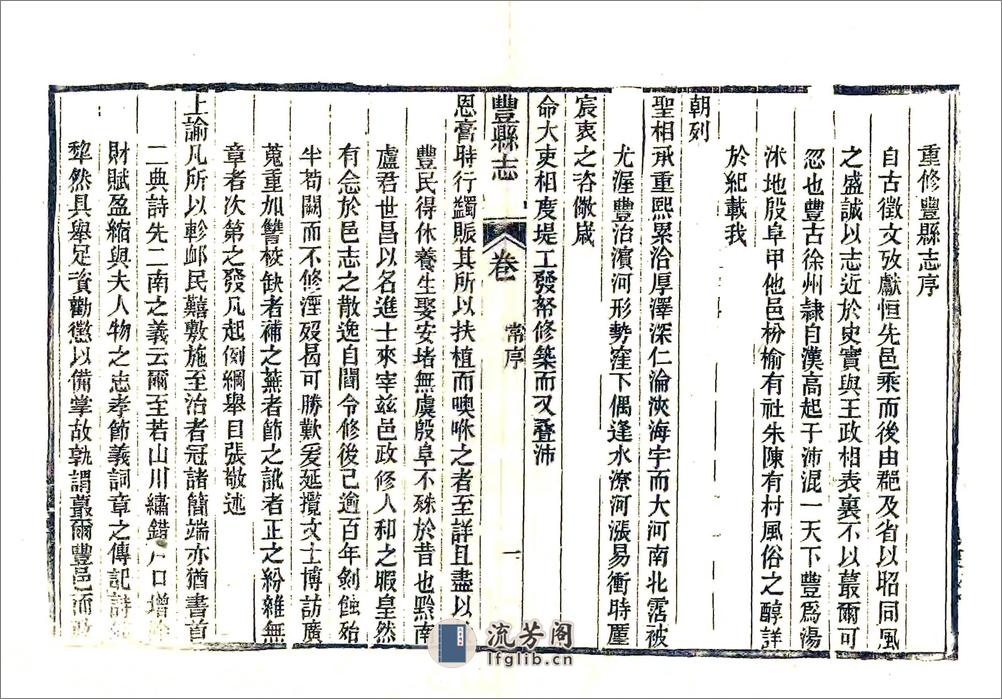 重修豐縣志序
自古徵文攷獻恒先邑乘而後由郡及省以昭同風
之盛誠以志近於史實與王政相表裏不以蕞爾可
忽也豐古徐州隸自漢高起于沛混一天下豐爲湯
沐地殷阜甲他邑枌榆有社朱陳有村風俗之醇詳
於紀載我
朝列
聖相承重熙累洽厚澤深仁淪浹海宇而大河南北霑被
尤渥豐治濱河形勢窪下偶逢水潦河漲易衝時廑
宸衷之咨儆歲
命大吏相度堤工發帑修築而又叠沛
豐縣志
卷一
常序
一
恩膏時行蠲賑其所以扶植而噢咻之者至詳且盡以
豐民得休養生聚安堵無虞殷阜不殊於昔也黔南
盧君世昌以名進士來宰兹邑政修人和之暇皇然
有念於邑志之散逸自閻令修後已逾百年剝蝕殆
半苟闕而不修湮殁曷可勝歎爰延攬文士博訪廣
蒐重加讐校缺者補之蕪者節之訛者正之紛雜無
章者次第之發凡起例綱舉目張敬述
上諭凡所以軫邮民囏敷施至治者冠諸簡端亦猶書首
二典詩先二南之義云爾至若山川繡錯戶口增
財賦盈縮與夫人物之忠孝節義詞章之傳記詩
犂然具舉足資勸懲以備掌故孰謂蕞爾豐邑而
流芳阁
lfglib.cn